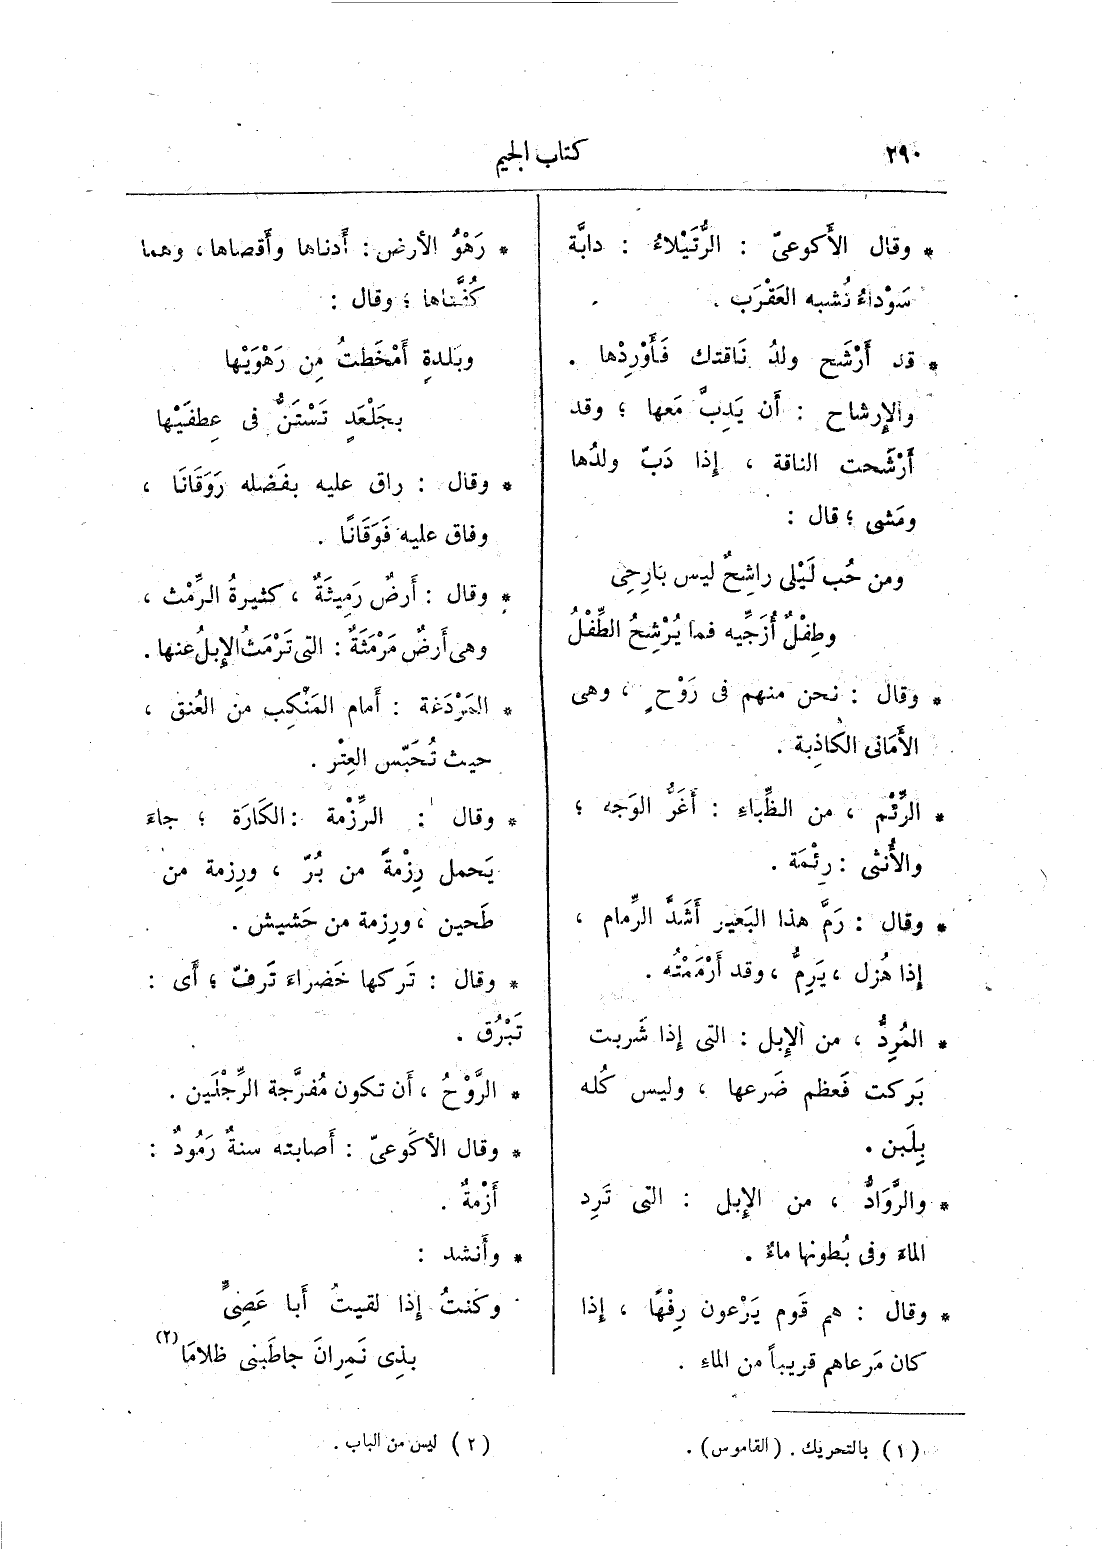 ٢٩٠
كتاب الجيم
* وقال الأَكوعىّ : الرُّتَيْلاءُ : دابَّة
سَوْداءُ تُشبه العَقْرَب .
* قد أَرْشَح ولدُ نَاقتك فَأَوْرِدْها .
والإِرشاح : أَن يَدِبَّ مَعها ؛ وقد
أَرْشَحت الناقة ، إِذا دَبّ ولدُها
ومَشى ؛ قال :
ومن حُب لَيْلى راشِحٌ ليس بَارِحِى
وطِفْلٌ أُزَجِّيه فما يُرْشِحُ الطِّفْلُ
* وقال : نحن منهم فى رَوْحٍ ، وهى
الأَمَانى الكَاذِبة .
* الرِّئْم ، من الظِّباءِ : أَغَرُّ الوَجه ؛
والأُنثى : رِئْمَة .
* وقال : رَمَّ هذا البَعير أَشَدَّ الرِّمام ،
إِذا هُزل ، يَرِمُّ ، وقد أَرْمَمْتُه .
* المُرِدُّ ، من الإِبل : التى إِذا شَربت
بَركت فَعظم ضَرعها ، وليس كُله
بِلَبن .
* والرَّوَادُّ ، من الإِبل : التى تَرِد
الماءَ وفى بُطونها ماءٌ .
* وقال : هم قَوم يَرْعون رِفْهًا ، إِذا
كان مَرعاهم قريباً من الماءِ .
* رَهْوُ الأَرض : أَدناها وأَقصاها ، وهما
كُفَّتاها ؛ وقال :
وبَلدةٍ أَمْخَطتُ مِن رَهْوَيْها
بجَلْعَدٍ تَسْتَنُّ فى عِطفَيْها
* وقال : راق عليه بفَضله رَوَقَانَا ،
وفاق عليه فَوَقَانًا .
* وقال : أَرضٌ رَمِيثَةٌ ، كثيرةُ الرِّمْث ،
وهى أَرضٌ مَرْمَثَةٌ : التى تَرْمَثُ الإِبلُ عنها .
* المَرْدَغة : أَمام المَنْكِب من العُنق ،
حيث تُحَبّس العِتْر .
* وقال : الرِّزْمة : الكَارَة ؛ جاءَ
يَحمل رِزْمةً من بُرّ ، ورِزمة من
طَحين ، ورِزمة من حَشيش .
* وقال : تَركها خَضراءَ تَرفّ ؛ أَى :
تَبْرُق .
* الرَّوْحُ ، أَن تكون مُفرَّجة الرِّجْلَين .
* وقال الأَكَوعىّ : أَصابته سنةٌ رَمُودٌ :
أَزْمةٌ .
* وأَنشد :
وكَنتُ إِذا لقيتُ أَبا عَصِىٍّ
بذِى نَمِرانَ جاطَبنى ظلامَا (٢)
(١) بالتحريك . (القاموس) .
(٢) ليس من الباب .